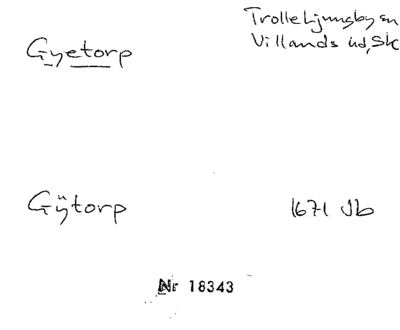 Gyetorp
Trolle Ljungby sn
Villands hd, Sk
Gÿtorp
1671 Jb
Nr 18343